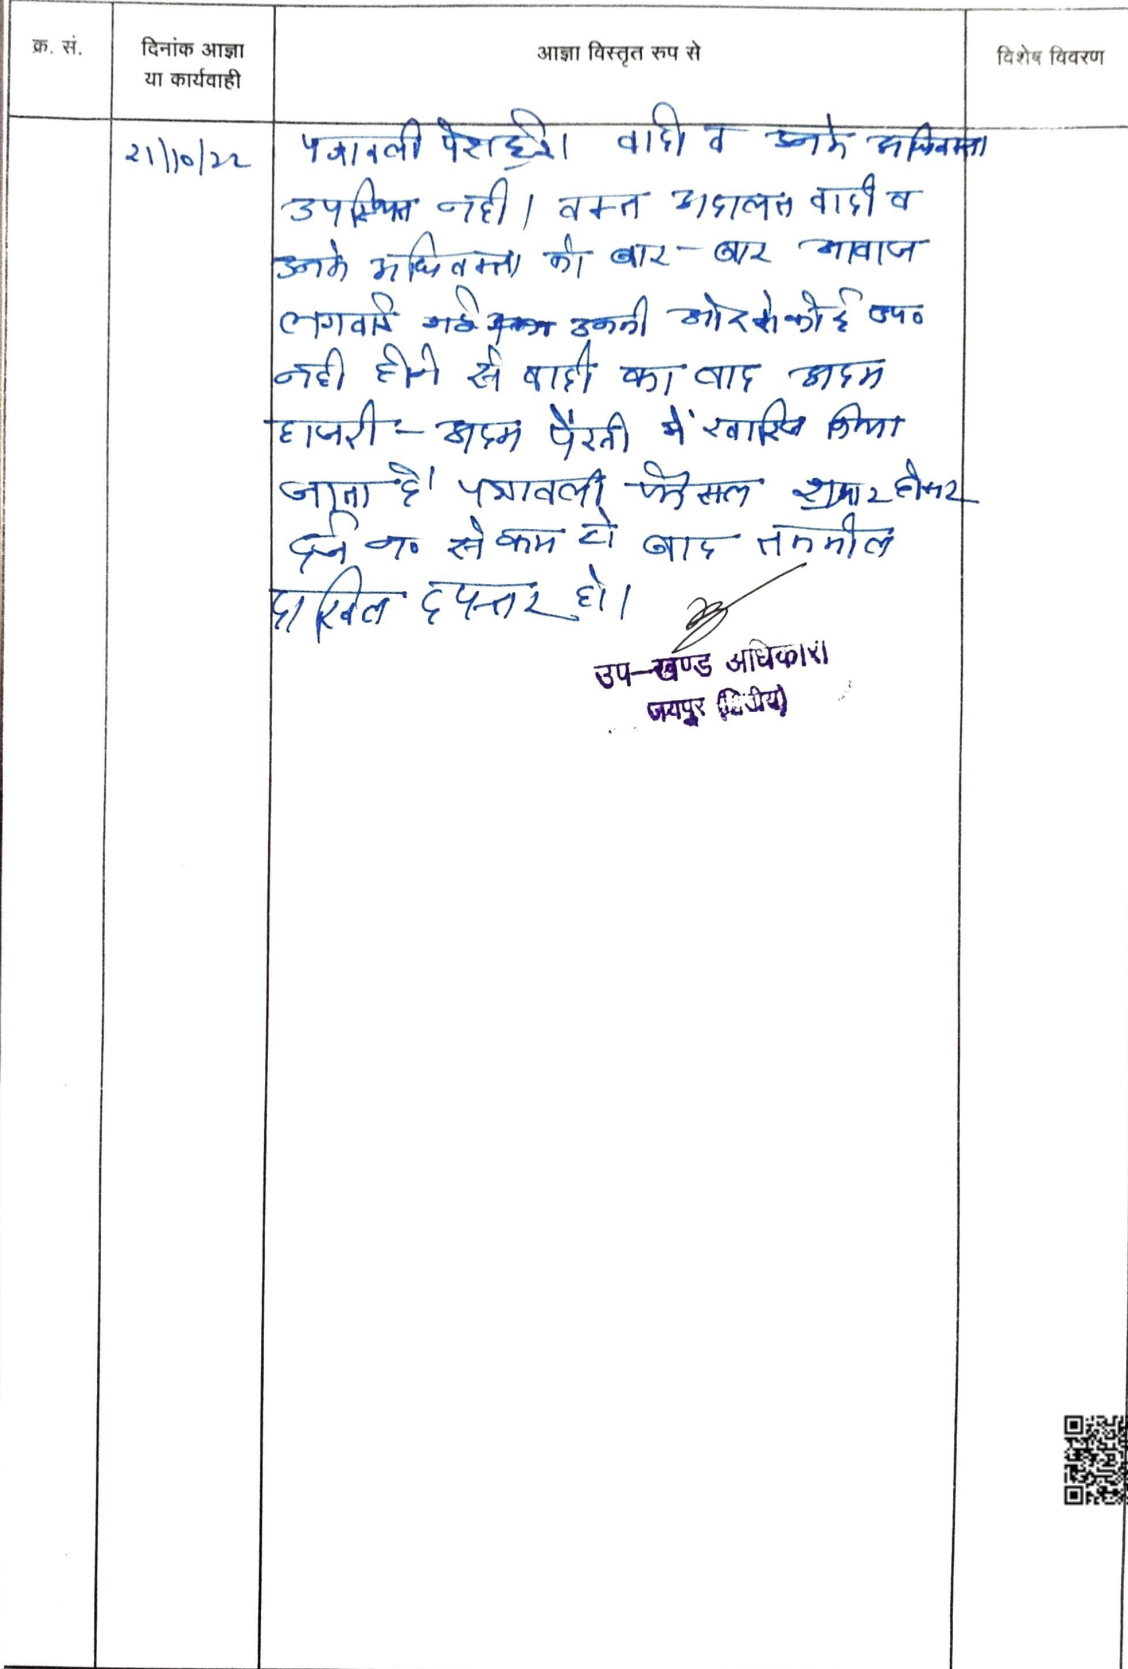 क्र. सं.
दिनांक आज्ञा
या कार्यवाही
आज्ञा विस्तृत रुप से
विशेष विवरण
21/10/22
पत्रावली पेश हुई। वादी व उनके अधिवक्ता
उपस्थित नही। वक्त अदालत वादी व
उनके अधिवक्ता को बार-बार आवाज
लगवाई गई उनकी ओर से कोई उप०
नही होने से वादी का वाद अदम
हाजरी - अदम पैरवी में खारिज किया
जाता है। पत्रावली फैसल शुमार होकर
दर्ज न० से कम हो बाद तकमील
दाखिल दफ्तर हो।
उप-खण्ड अधिकारी
जयपुर (द्वितीय)